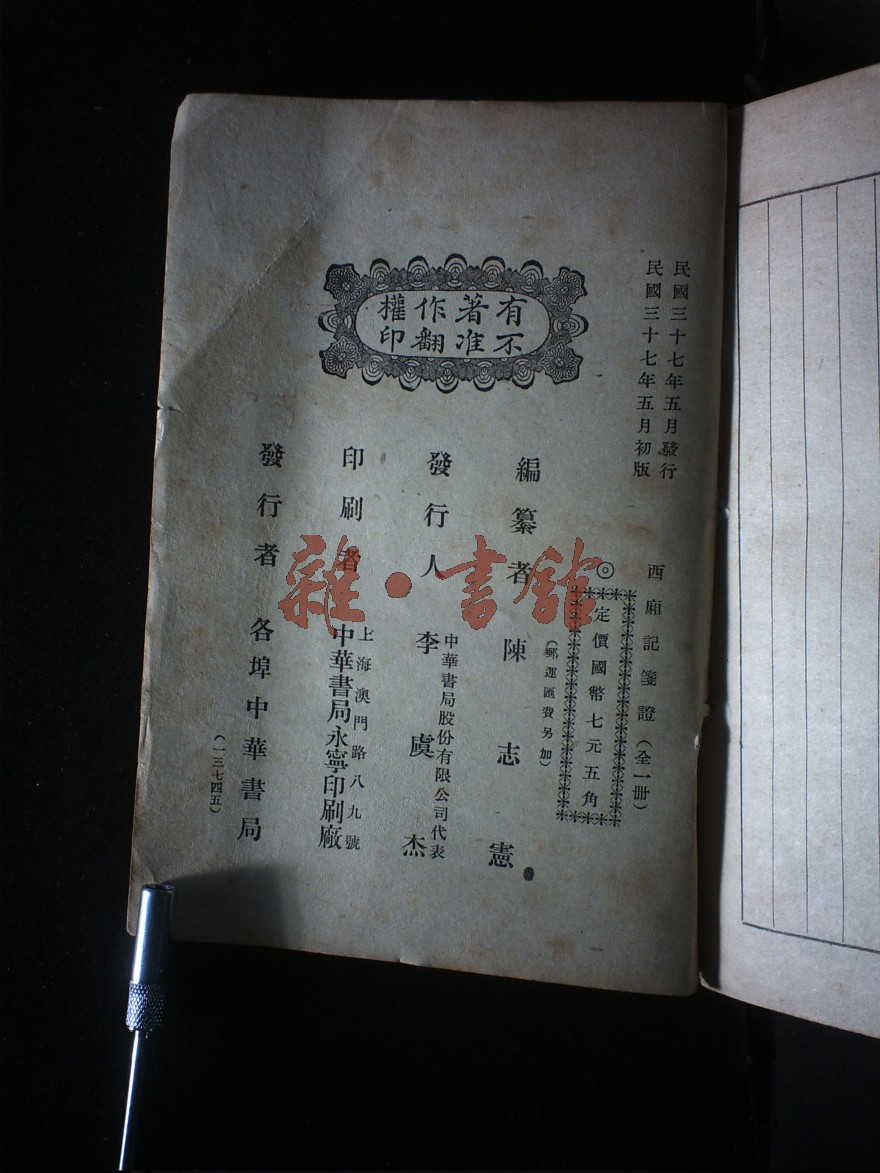 民國三十七年五月發行
民國三十七年五月初版
西廂記箋證（全一冊）
◎定價國幣七元五角
（郵運匯費另加）
有著作權
不准翻印
編纂者 陳志憲
發行人 中華書局股份有限公司代表
李虞杰
印刷者 上海澳門路八九號
中華書局永寧印刷廠
發行者 各埠中華書局
（一三七四五）
雜·書館